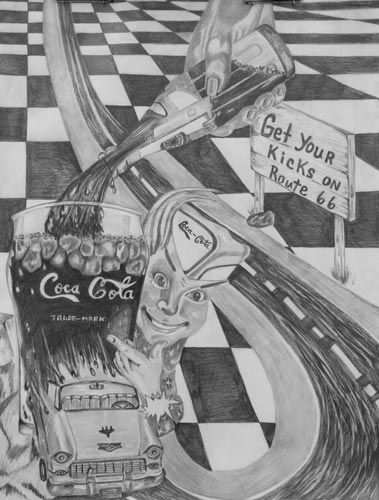 Get Your
Kicks on
Route 66
Coca-Cola
Coca Cola
TRADE-MARK